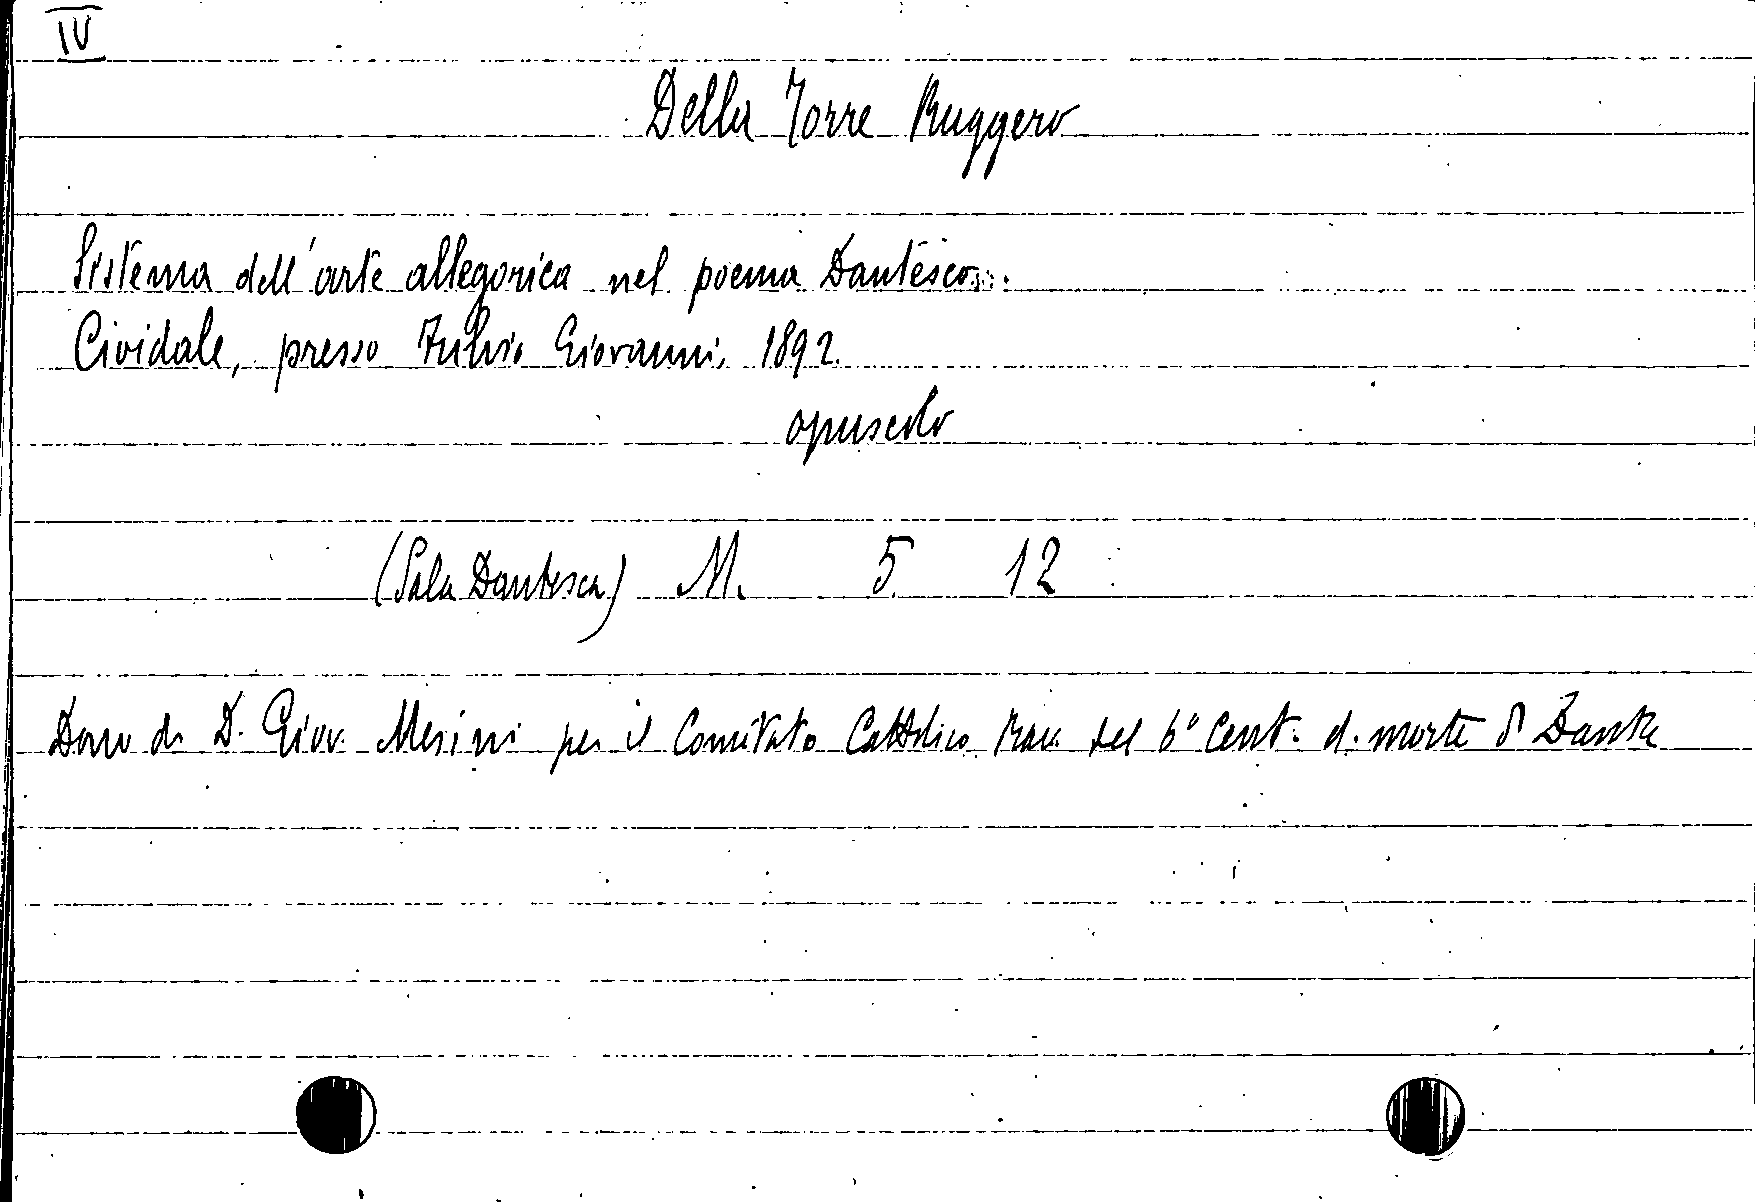 IV
Della Torre Ruggero
Sistema dell'arte allegorica nel poema Dantesco.
Cividale, presso Fulvio Giovanni, 1892.
opuscolo
(Sala Dantesca) M. 5. 12
Dono di D. Giov. Mesini per il Comitato Cattolico Rav. del 6° Cent. d. morte di Dante